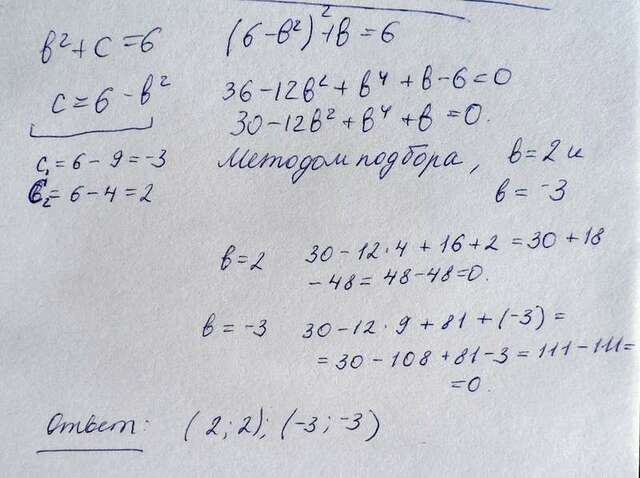 в²+с=6
с=6-в²
с₁=6-9=-3
с₂=6-4=2
(6-в²)²+в=6
36-12в²+в⁴+в-6=0
30-12в²+в⁴+в=0.
Методом подбора, в=2 и
в=-3
в=2 30-12·4+16+2=30+18
-48=48-48=0.
в=-3 30-12·9+81+(-3)=
=30-108+81-3=111-111=
=0.
Ответ: (2;2); (-3;-3)